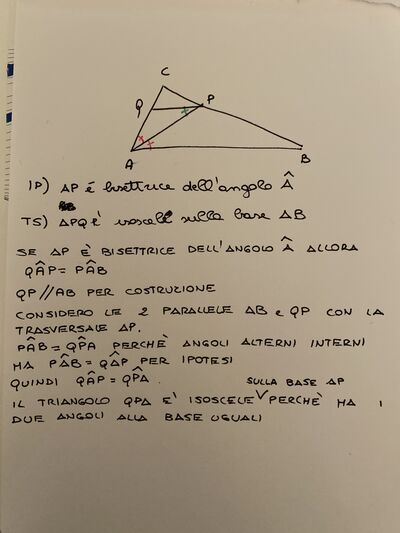 C
Q
P
A
B
IP) AP é bisettrice dell'angolo Â
TS) APQ è isoscele sulla base AB
SE AP È BISETTRICE DELL'ANGOLO Â ALLORA
QÂP = PÂB
QP // AB PER COSTRUZIONE
CONSIDERO LE 2 PARALLELE AB e QP CON LA
TRASVERSALE AP.
PÂB = QP̂A PERCHÈ ANGOLI ALTERNI INTERNI
MA PÂB = QÂP PER IPOTESI
QUINDI QÂP = QP̂A.
SULLA BASE AP
IL TRIANGOLO QPA E' ISOSCELE PERCHÈ HA I
DUE ANGOLI ALLA BASE UGUALI